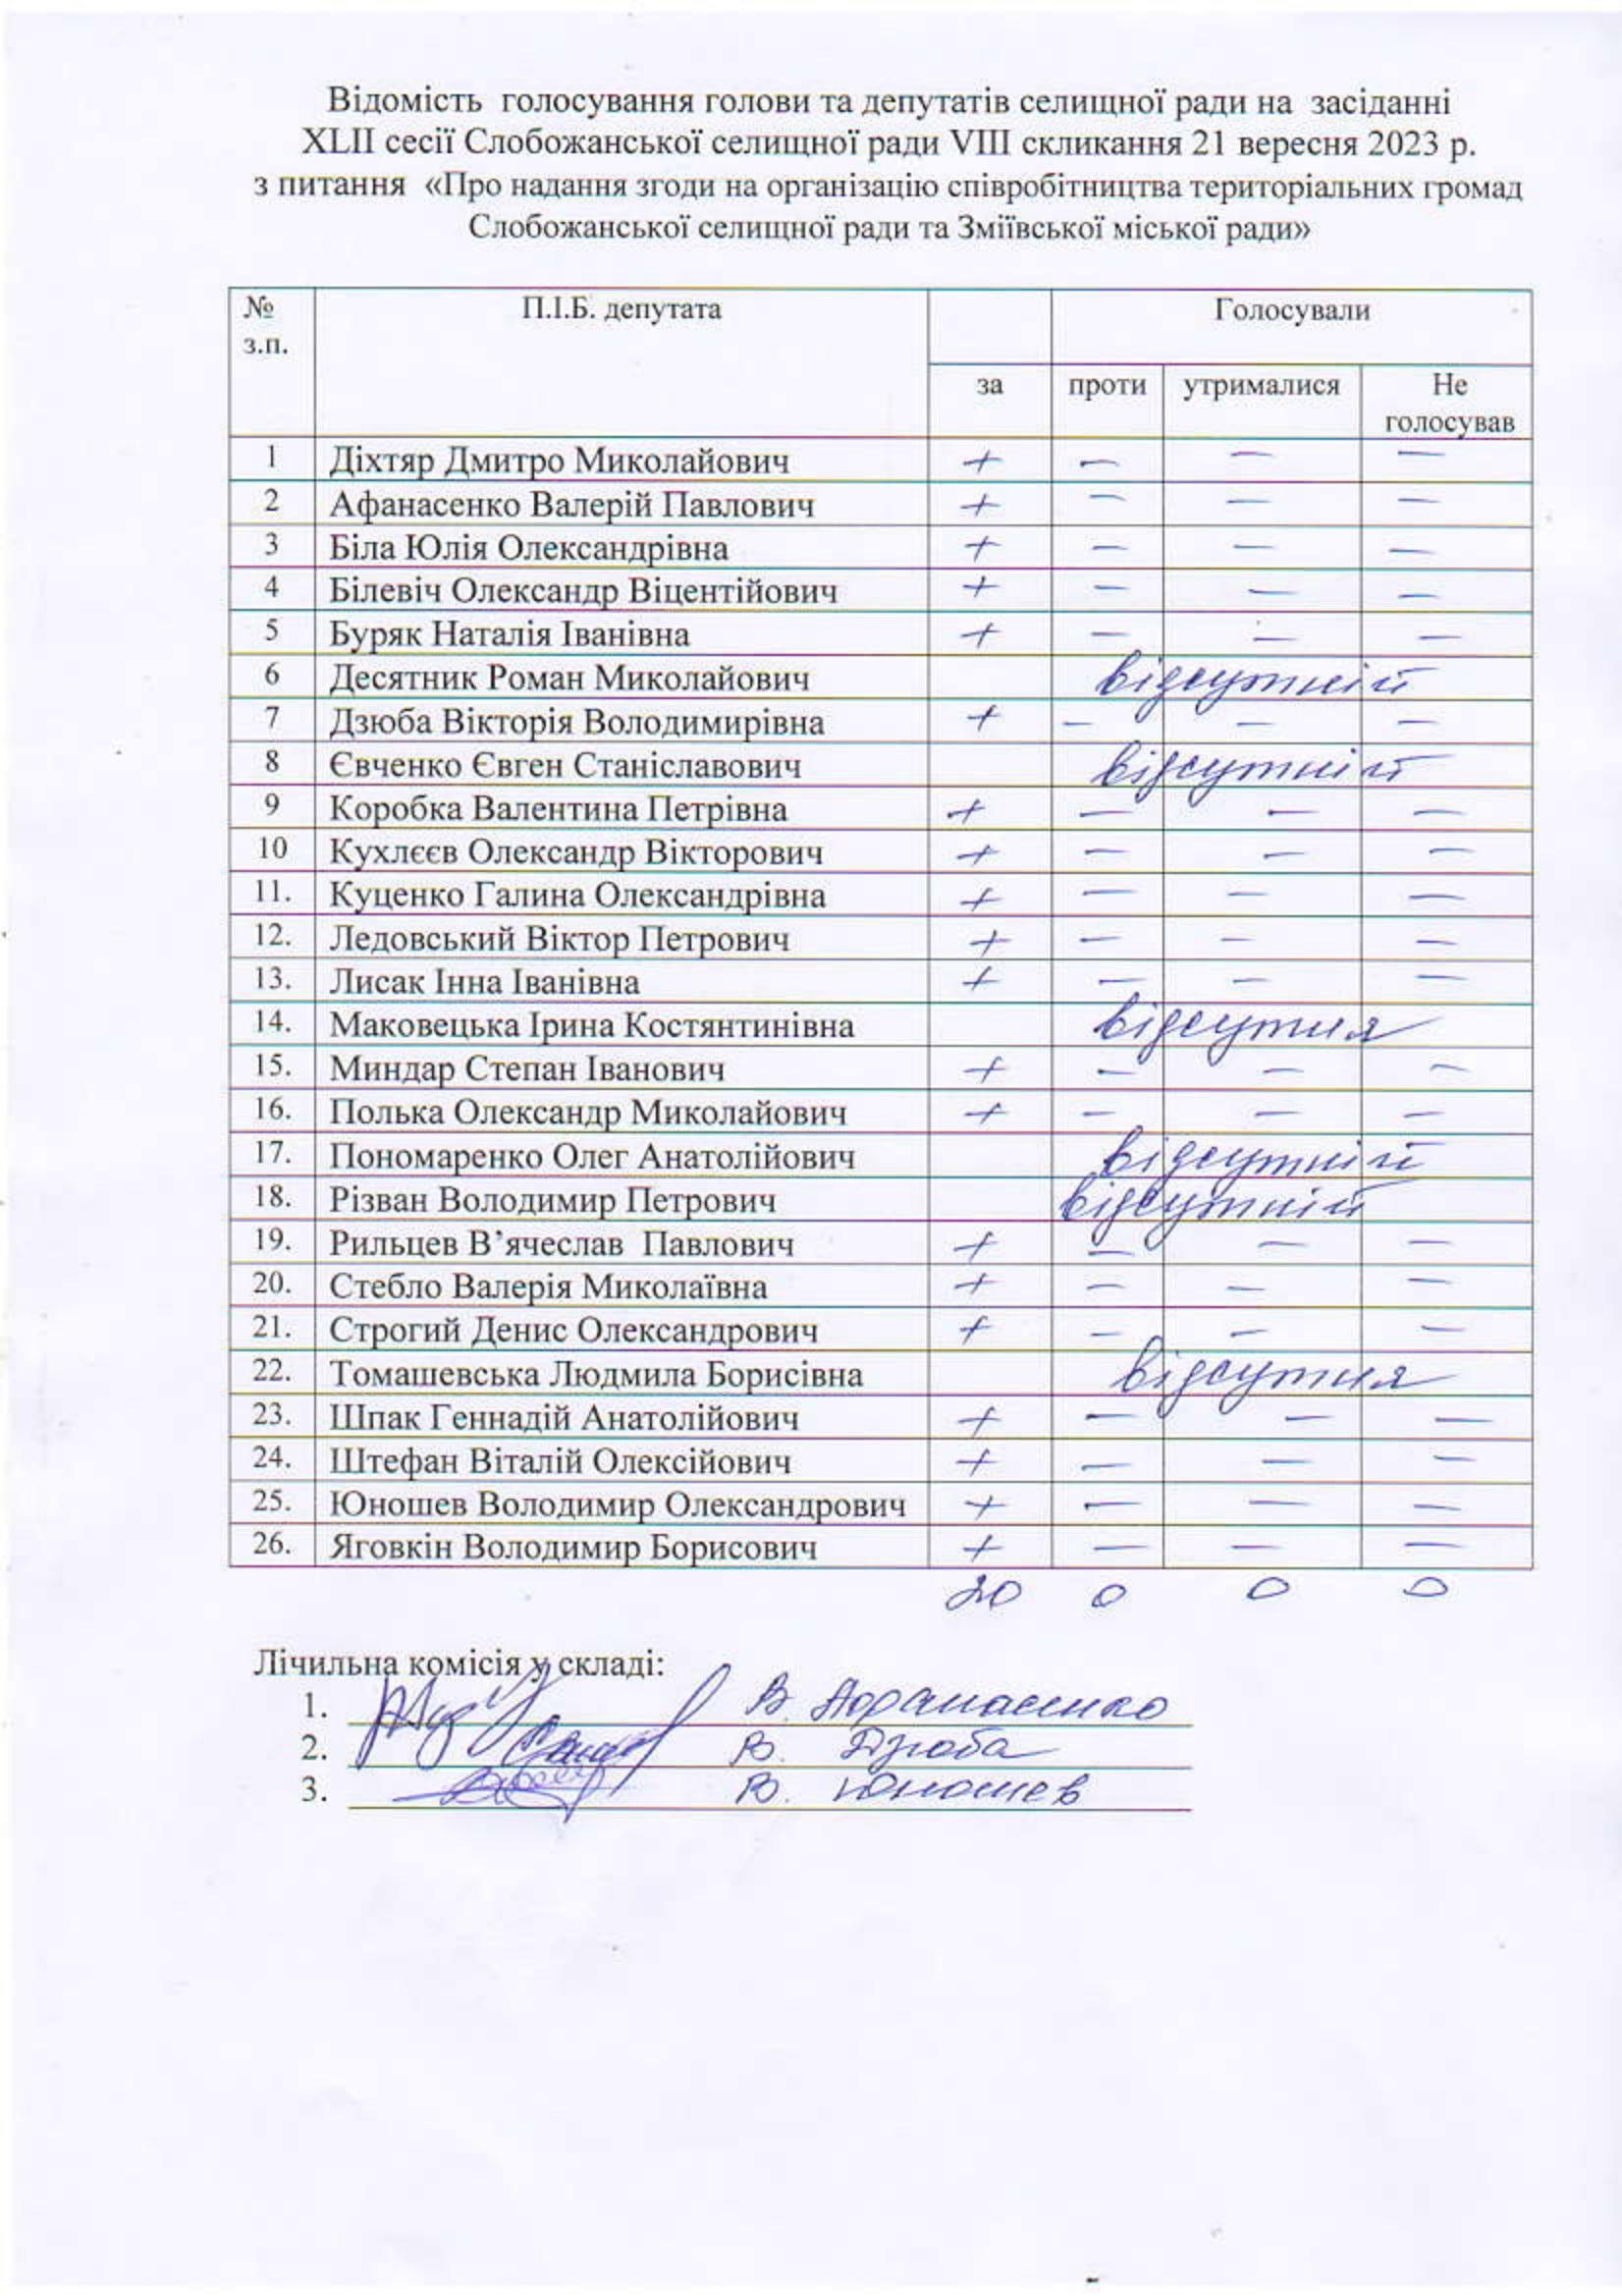 Відомість голосування голови та депутатів селищної ради на засіданні
XLII сесії Слобожанської селищної ради VIII скликання 21 вересня 2023 р.
з питання «Про надання згоди на організацію співробітництва територіальних громад
Слобожанської селищної ради та Зміївської міської ради»
№ з.п. П.І.Б. депутата Голосували
за проти утрималися Не голосував
1 Діхтяр Дмитро Миколайович + — — —
2 Афанасенко Валерій Павлович + — — —
3 Біла Юлія Олександрівна + — — —
4 Білевіч Олександр Віцентійович + — — —
5 Буряк Наталія Іванівна + — — —
6 Десятник Роман Миколайович відсутній
7 Дзюба Вікторія Володимирівна + — — —
8 Євченко Євген Станіславович відсутній
9 Коробка Валентина Петрівна + — — —
10 Кухлєєв Олександр Вікторович + — — —
11. Куценко Галина Олександрівна + — — —
12. Ледовський Віктор Петрович + — — —
13. Лисак Інна Іванівна + — — —
14. Маковецька Ірина Костянтинівна відсутня
15. Миндар Степан Іванович + — — —
16. Полька Олександр Миколайович + — — —
17. Пономаренко Олег Анатолійович відсутній
18. Різван Володимир Петрович відсутній
19. Рильцев В’ячеслав Павлович + — — —
20. Стебло Валерія Миколаївна + — — —
21. Строгий Денис Олександрович + — — —
22. Томашевська Людмила Борисівна відсутня
23. Шпак Геннадій Анатолійович + — — —
24. Штефан Віталій Олексійович + — — —
25. Юношев Володимир Олександрович + — — —
26. Яговкін Володимир Борисович + — — —
20 0 0 0
Лічильна комісія у складі:
1. В. Афанасенко
2. В. Дзюба
3. В. Юношев